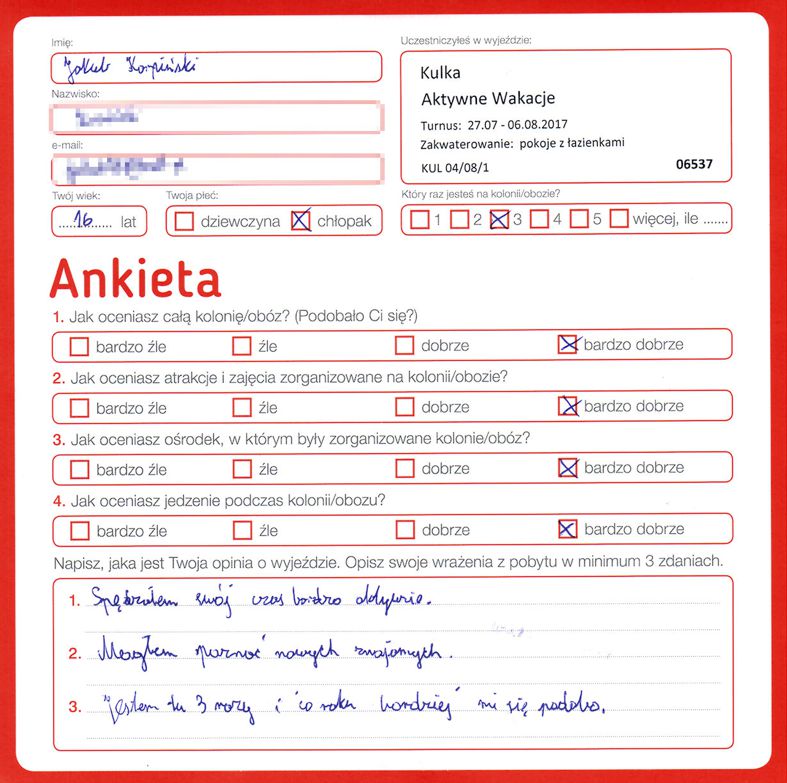 Imię:
Jakub Karpiński
Nazwisko:
e-mail:
Twój wiek:
16 lat
Twoja płeć:
dziewczyna chłopak
Uczestniczyłeś w wyjeździe:
Kulka
Aktywne Wakacje
Turnus: 27.07 - 06.08.2017
Zakwaterowanie: pokoje z łazienkami
KUL 04/08/1 06537
Który raz jesteś na kolonii/obozie?
1 2 3 4 5 więcej, ile .......
Ankieta
1. Jak oceniasz całą kolonię/obóz? (Podobało Ci się?)
bardzo źle źle dobrze bardzo dobrze
2. Jak oceniasz atrakcje i zajęcia zorganizowane na kolonii/obozie?
bardzo źle źle dobrze bardzo dobrze
3. Jak oceniasz ośrodek, w którym były zorganizowane kolonie/obóz?
bardzo źle źle dobrze bardzo dobrze
4. Jak oceniasz jedzenie podczas kolonii/obozu?
bardzo źle źle dobrze bardzo dobrze
Napisz, jaka jest Twoja opinia o wyjeździe. Opisz swoje wrażenia z pobytu w minimum 3 zdaniach.
1. Spędzałem swój czas bardzo aktywnie.
2. Mogłem poznać nowych znajomych.
3. Jestem tu 3 razy i co roku bardziej mi się podoba.